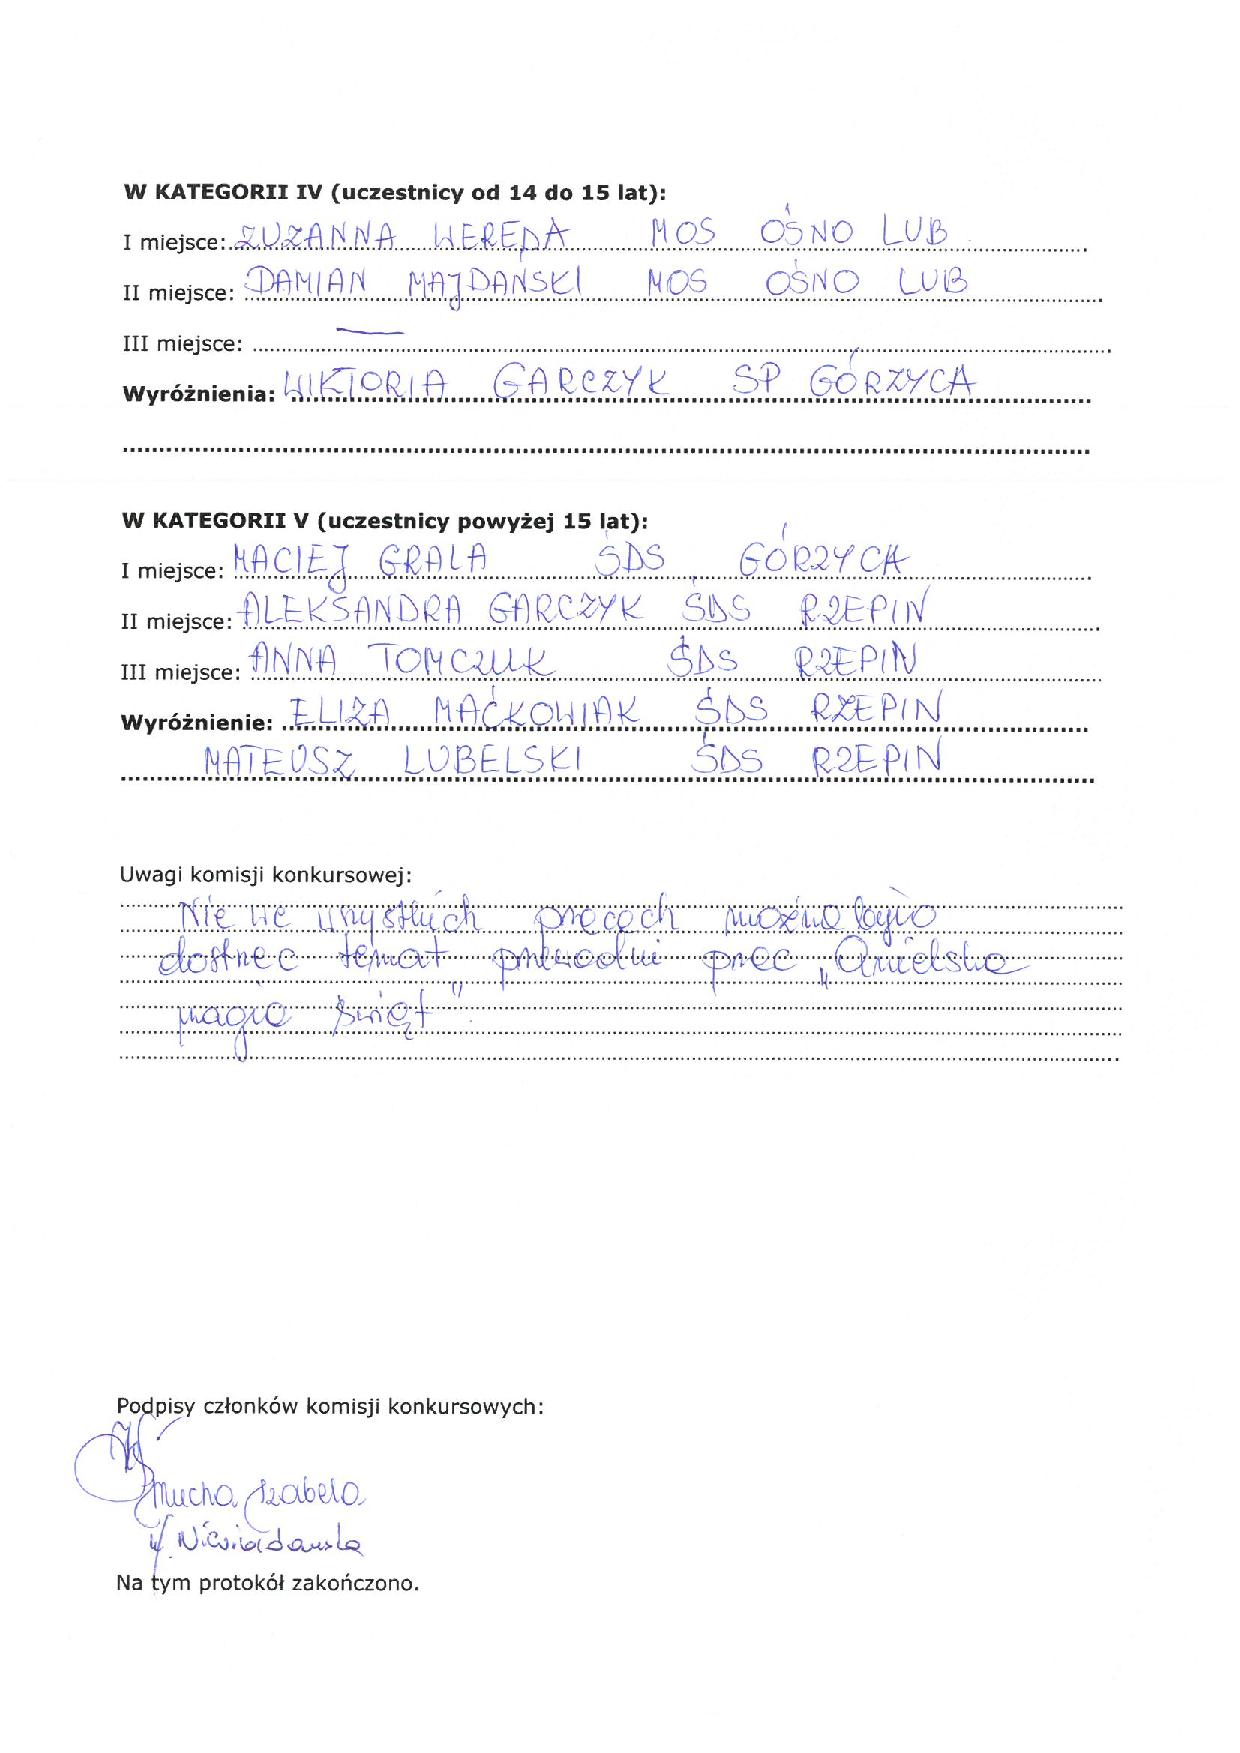 W KATEGORII IV (uczestnicy od 14 do 15 lat):
I miejsce: ZUZANNA WEREDA MOS OŚNO LUB
II miejsce: DAMIAN MAJDAŃSKI MOS OŚNO LUB
III miejsce: —
Wyróżnienia: WIKTORIA GARCZYK SP GÓRZYCA
W KATEGORII V (uczestnicy powyżej 15 lat):
I miejsce: MACIEJ GRALA ŚDS GÓRZYCA
II miejsce: ALEKSANDRA GARCZYK ŚDS RZEPIN
III miejsce: ANNA TOMCZUK ŚDS RZEPIN
Wyróżnienie: ELIZA MAĆKOWIAK ŚDS RZEPIN
MATEUSZ LUBELSKI ŚDS RZEPIN
Uwagi komisji konkursowej:
Nie we wszystkich pracach można było
dostrzec temat przewodni prac „Anielska
magia Świąt”
Podpisy członków komisji konkursowych:
Mucha Izabela
Na tym protokół zakończono.